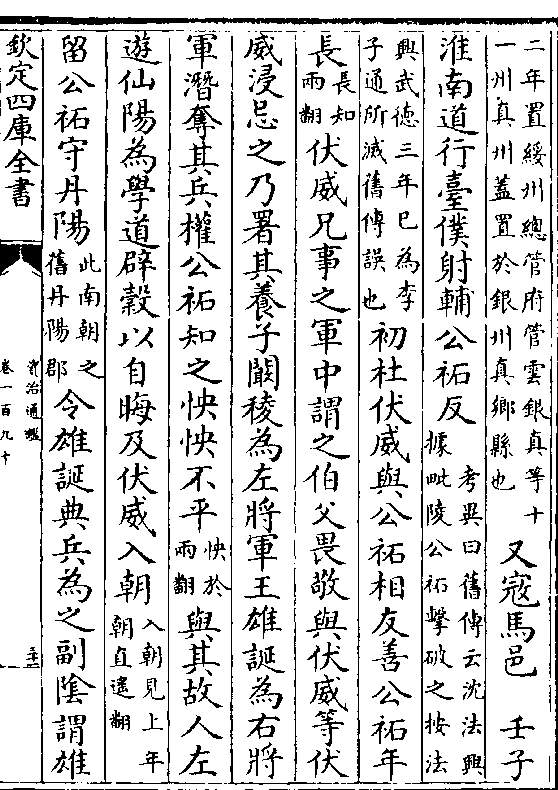 二年置綏州總管府管雲銀真等十
一州真州蓋置於銀州真鄉縣也
又寇馬邑　壬子
淮南道行臺僕射輔公祏反
考異曰舊傳云沈法興
據毗陵公祏擊破之按法
興武德三年已為李
子通所滅舊傳誤也
初杜伏威與公祏相友善公祏年
長
長知
兩翻
伏威兄事之軍中謂之伯父畏敬與伏威等伏
威浸忌之乃署其養子闞稜為左將軍王雄誕為右將
軍潛奪其兵權公祏知之怏怏不平
怏於
兩翻
與其故人左
遊仙陽為學道辟穀以自晦及伏威入朝
入朝見上年
朝直遙翻
留公祏守丹陽
此南朝之
舊丹陽郡
令雄誕典兵為之副陰謂雄
欽定四庫全書
資治通鑑
卷一百九十